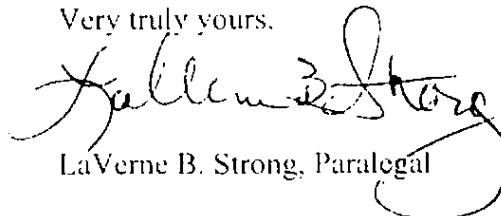 Very truly yours,
LaVerne B. Strong
LaVerne B. Strong, Paralegal